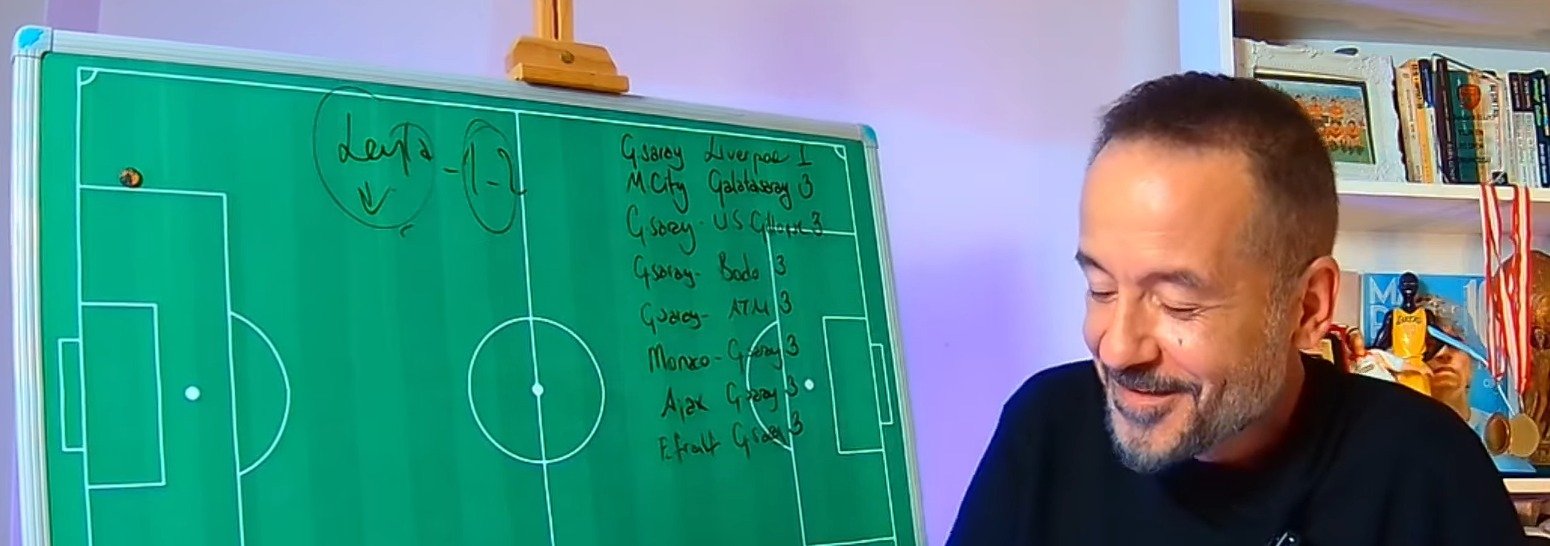 Leyla -1-2
Gsaray Liverpool 1
M.City Galatasaray 3
Gsaray- US Gilloise 3
Gsaray- Bodo 3
Gsaray- ATM 3
Monaco- Gsaray 3
Ajax Gsaray 3
E.frankf Gsaray 3
LAKERS
MA
10
D